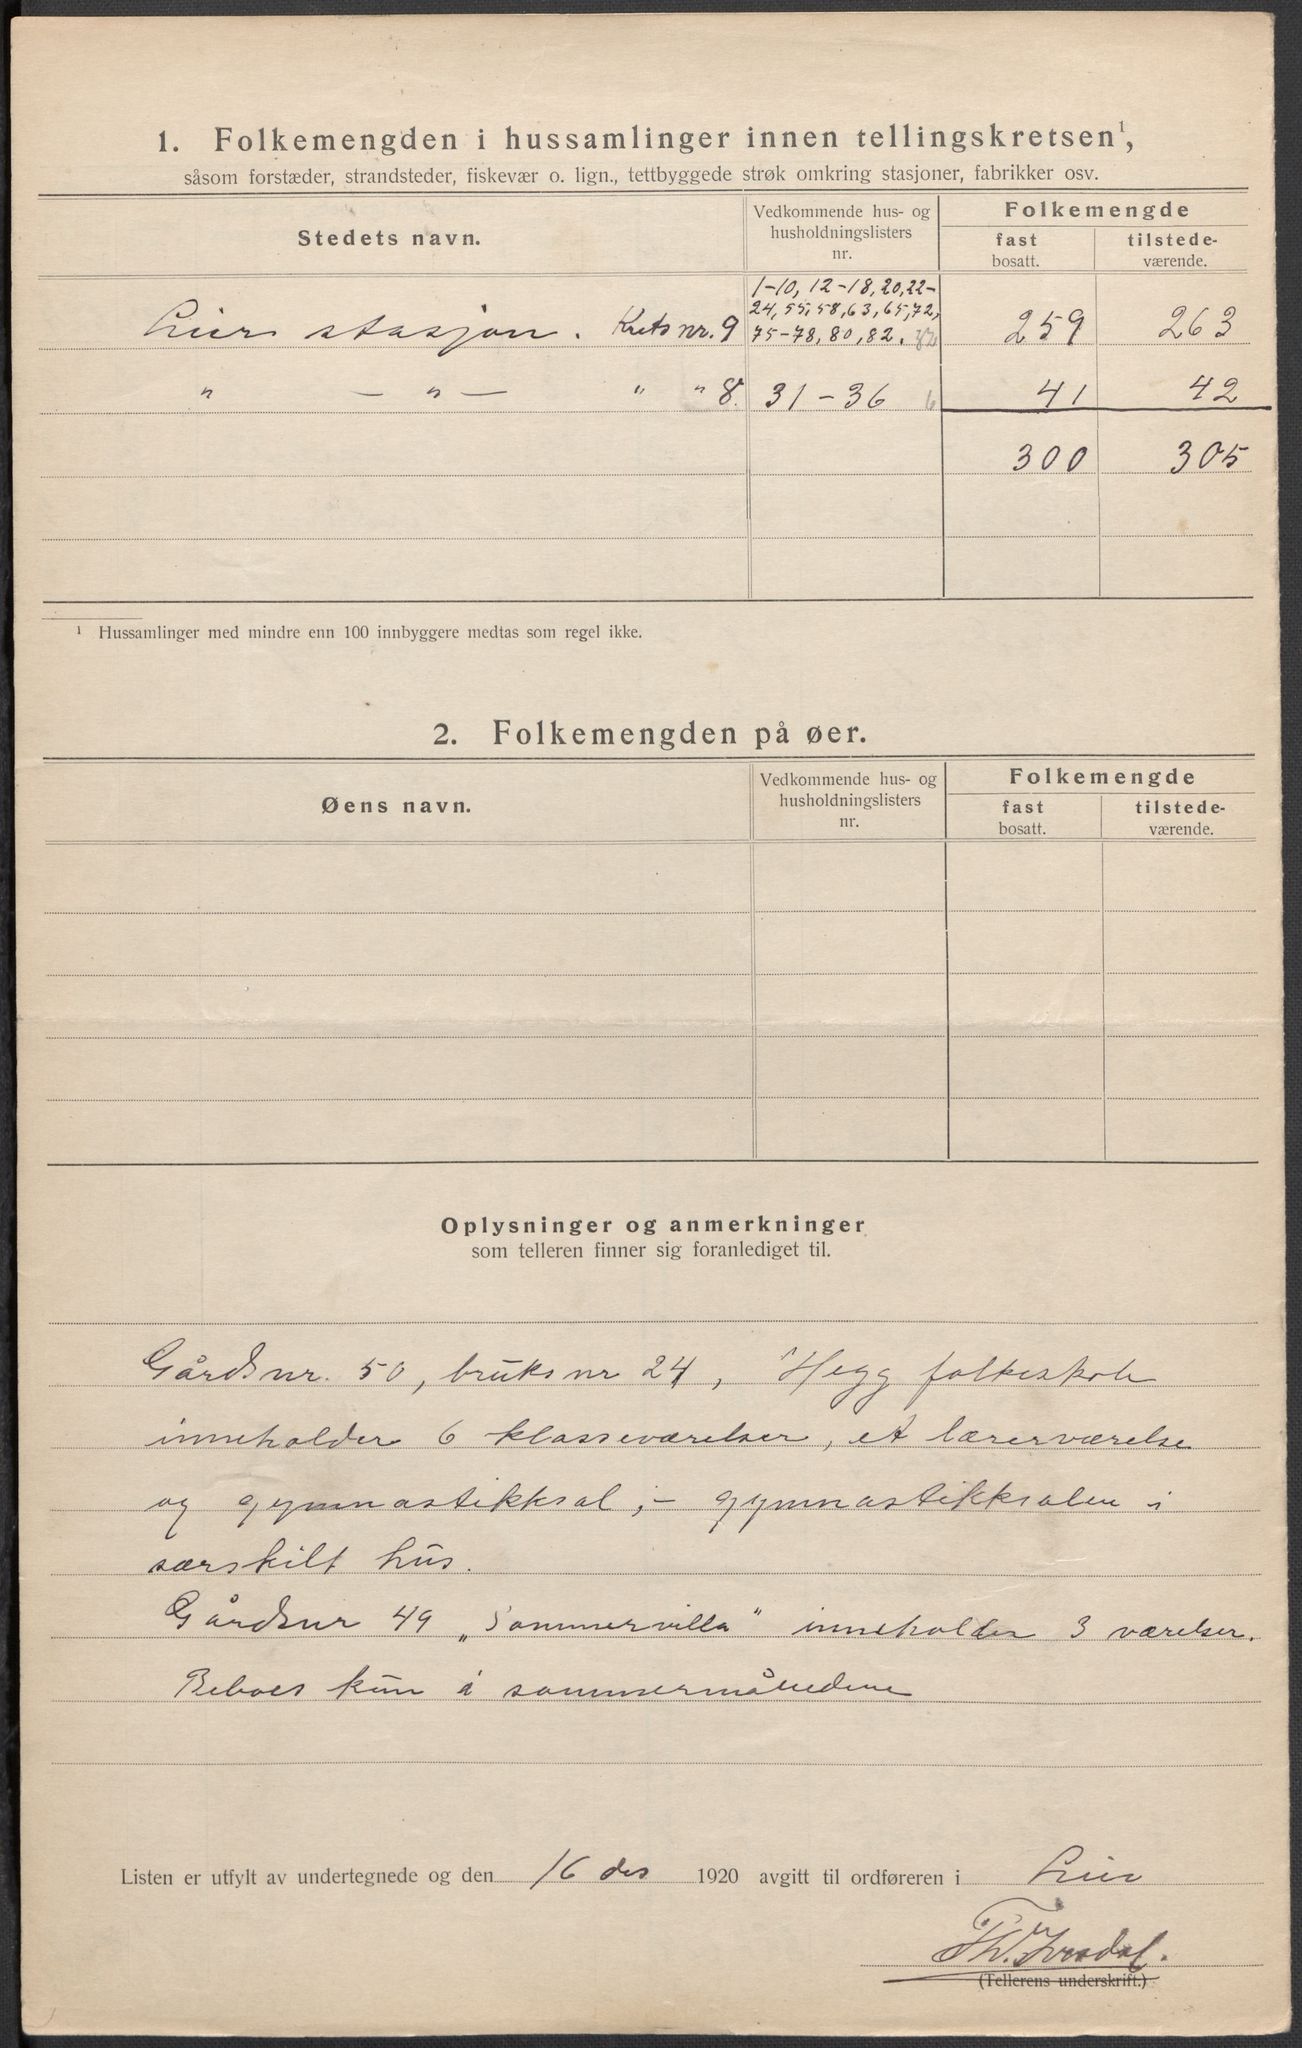 1. Folkemengden i hussamlinger innen tellingskretsen¹,
såsom forstæder, strandsteder, fiskevær o. lign., tettbyggede strøk omkring stasjoner, fabrikker osv.
Stedets navn. Vedkommende hus- og husholdningslisters nr. Folkemengde
fast bosatt. tilstede-værende.
1-10, 12-18, 20, 22-
24, 55, 58, 63, 65, 72,
Lier stasjon. Krets nr. 9 75-78, 80, 82. 259 263
" — " — " " 8. 31 - 36 6 41 42
300 305
¹ Hussamlinger med mindre enn 100 innbyggere medtas som regel ikke.
2. Folkemengden på øer.
Øens navn. Vedkommende hus- og husholdningslisters nr. Folkemengde
fast bosatt. tilstede-værende.
Oplysninger og anmerkninger
som telleren finner sig foranlediget til.
Gårdsnr. 50, bruksnr 24, Hegg folkeskole
inneholder 6 klasseværelser, et lærerværelse
og gymnastikksal; - gymnastikksalen i
særskilt hus.
Gårdsnr 49 „Sommervilla" inneholder 3 værelser.
Beboes kun i sommermånedene
Listen er utfylt av undertegnede og den 16 des 1920 avgitt til ordføreren i Lier
Th.
(Tellerens underskrift.)